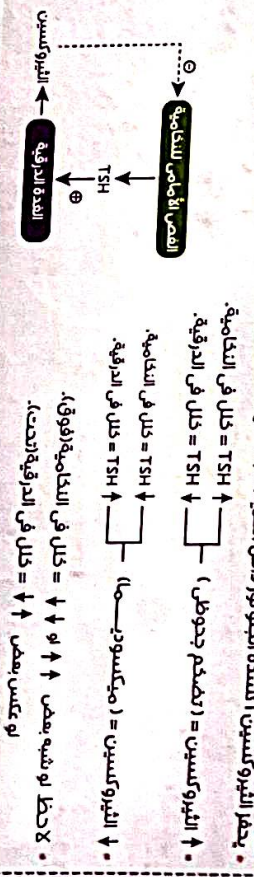 الفص الأمامى للنخامية
TSH
الغدة الدرقية
الثيروكسين
يحفز الثيروكسين
↑ الثيروكسين = (تضخم جحوظى)
↑ TSH = خلل فى النخامية.
↓ TSH = خلل فى الدرقية.
↓ الثيروكسين = (ميكسوديـــما)
↓ TSH = خلل فى النخامية.
↑ TSH = خلل فى الدرقية.
لاحظ لو شبه بعض ↑ ↑ او ↓ ↓ = خلل فى النخامية (فوق).
لو عكس بعض ↑ ↓ = خلل فى الدرقية (تحت).